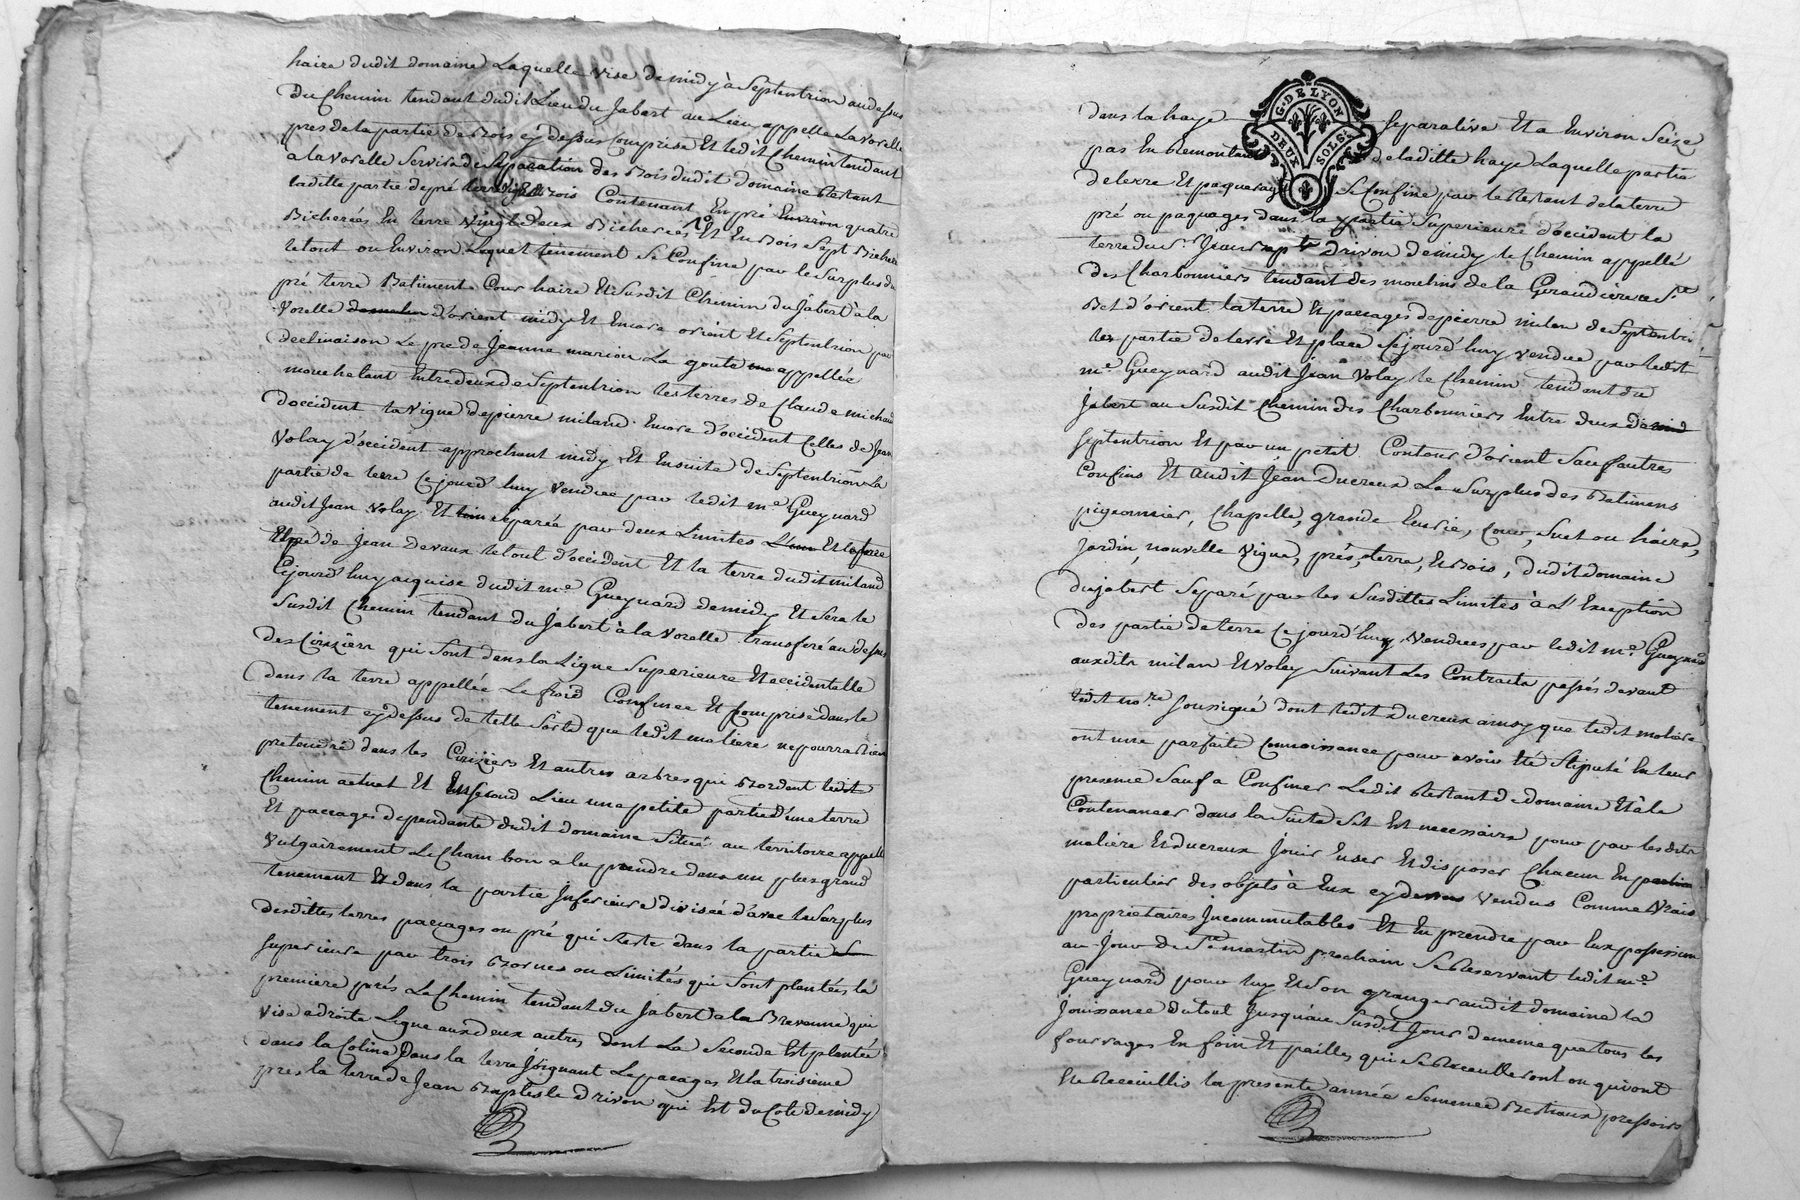 haire dudit domaine Laquelle vise de midy à Septentrion au dessus
Du Chemin tendant dudit Lieu du Jabert au Lieu appellé La vorelle
pres de la partie de Bois cy dessus Comprise Et ledit Chemin tendant
a la vorelle Servira de Separation des Bois dudit domaine Restant
ladite partie de pré terre Bois Contenant En pré Environ quatre
Bicherées En terre vingt deux Bicherées Et En Bois Sept Bicherées
le tout ou Environ Lequel tenement Se Confine par le Surplus du
pré terre Batiments Cour haire Et Susdit Chemin du Jabert à la
vorelle d'orient midy Et Encore orient Et Septentrion par
declinaison Le pré de Jeanne marion La goute appellée
mouchetant Entredeux de Septentrion les terres de Claude michaud
d'occident la vigne de pierre miland. Encore d'occident Celles de Jean
Volay d'occident approchant midy Et Ensuite de Septentrion La
partie de terre Cejourd'huy vendue par ledit me. Gueynard
audit Jean Volay Et separée par deux Limites Et la terre
Et pré de Jean Devaux le tout d'occident Et la terre dudit miland
Cejourd'huy acquise dudit me. Gueynard de midy Et Sera le
Susdit Chemin tendant du Jabert à la Vorelle transferé au dessus
des Ciriziers qui Sont dans la Ligne Superieure Et occidentalle
dans la terre appellée Le froid Confinee Et Comprise dans le
tenement cy dessus de telle Sorte que ledit moliere ne pourra rien
pretendre dans les Ciriziers Et autres arbres qui Bordent ledit
Chemin actuel Et En Second Lieu une petite partie d'une terre
Et paccages dependante dudit domaine Situé au territoire appellé
Vulgairement Le Chambon a la prendre dans un plus grand
tenement Et dans la partie Inferieure divisée d'avec le Surplus
desdittes terres paccages ou pré qui Reste dans la partie
Superieure par trois Bornes ou Limités qui Sont plantées la
premiere près Le Chemin tendant du Jabert a la Brevenne qui
Vise a droite Ligne aux deux autres dont La Seconde Est plantée
dans la Coline Dans la terre Joignant Le pacages Et la troisieme
pres la terre de Jean Baptiste Drivon qui Est du Coté de midy
dans la haye Separative Et a Environ Seize
pas En Remontant de laditte haye Laquelle partie
de terre Et paquerage Se Confine par le Restant de la terre
pré ou paquages dans la partie Superieure d'occident la
terre du Sr. Jean Bapte Drivon de midy le Chemin appellé
des Charbonniers tendant des moulins de la Giraudiere a St.
Bel d'orient la terre Et paccages de pierre milan de Septentrion
les partie de terre Et place Cejourd'huy vendue par ledit
me. Gueynard audit Jean Volay le Chemin tendant du
Jabert au Susdit Chemin des Charbonniers Entre deux
Septentrion Et par un petit Contour d'orient Sauf autres
Confins Et audit Jean Ducreux Le Surplus des Batimens
pigeonnier, Chapelle, grande Ecurie, Cour, Suel ou haire,
Jardin, nouvelle vigne, prés, terre, Et Bois, dudit domaine
du Jabert Separé par les Susdittes Limites à L'Exception
des partie de terre Cejourd'huy vendues par ledit me. Gueynard
auxdits milan Et Volay Suivant Les Contrats passés devant
ledit nore. Soussigné dont ledit Ducreux ainsy que ledit moliere
ont une parfaite Connoissance pour avoir Eté Stipulé En leur
presence Sauf a Confiner Ledit Restant de domaine Et à le
Contenancer dans la Suite S'il Est necessaire pour par lesdits
moliere Et Ducreux Jouir User Et disposer Chacun En
particulier des objets à Eux cy dessus vendus Comme vrais
proprietaires Incommutables Et En prendre par Eux possession
au Jour de St martin prochain Se Reservant ledit me.
Gueynard pour luy Et Son granger audit domaine la
Jouissance du tout Jusqu'au Susdit Jour de meme que tous les
fourrages En foin Et pailles qui Se Recueilleront ou qui ont
Eté Recueillis la presente année Semences Bestiaux pressoirs
G. DE LYON
DEUX SOLS